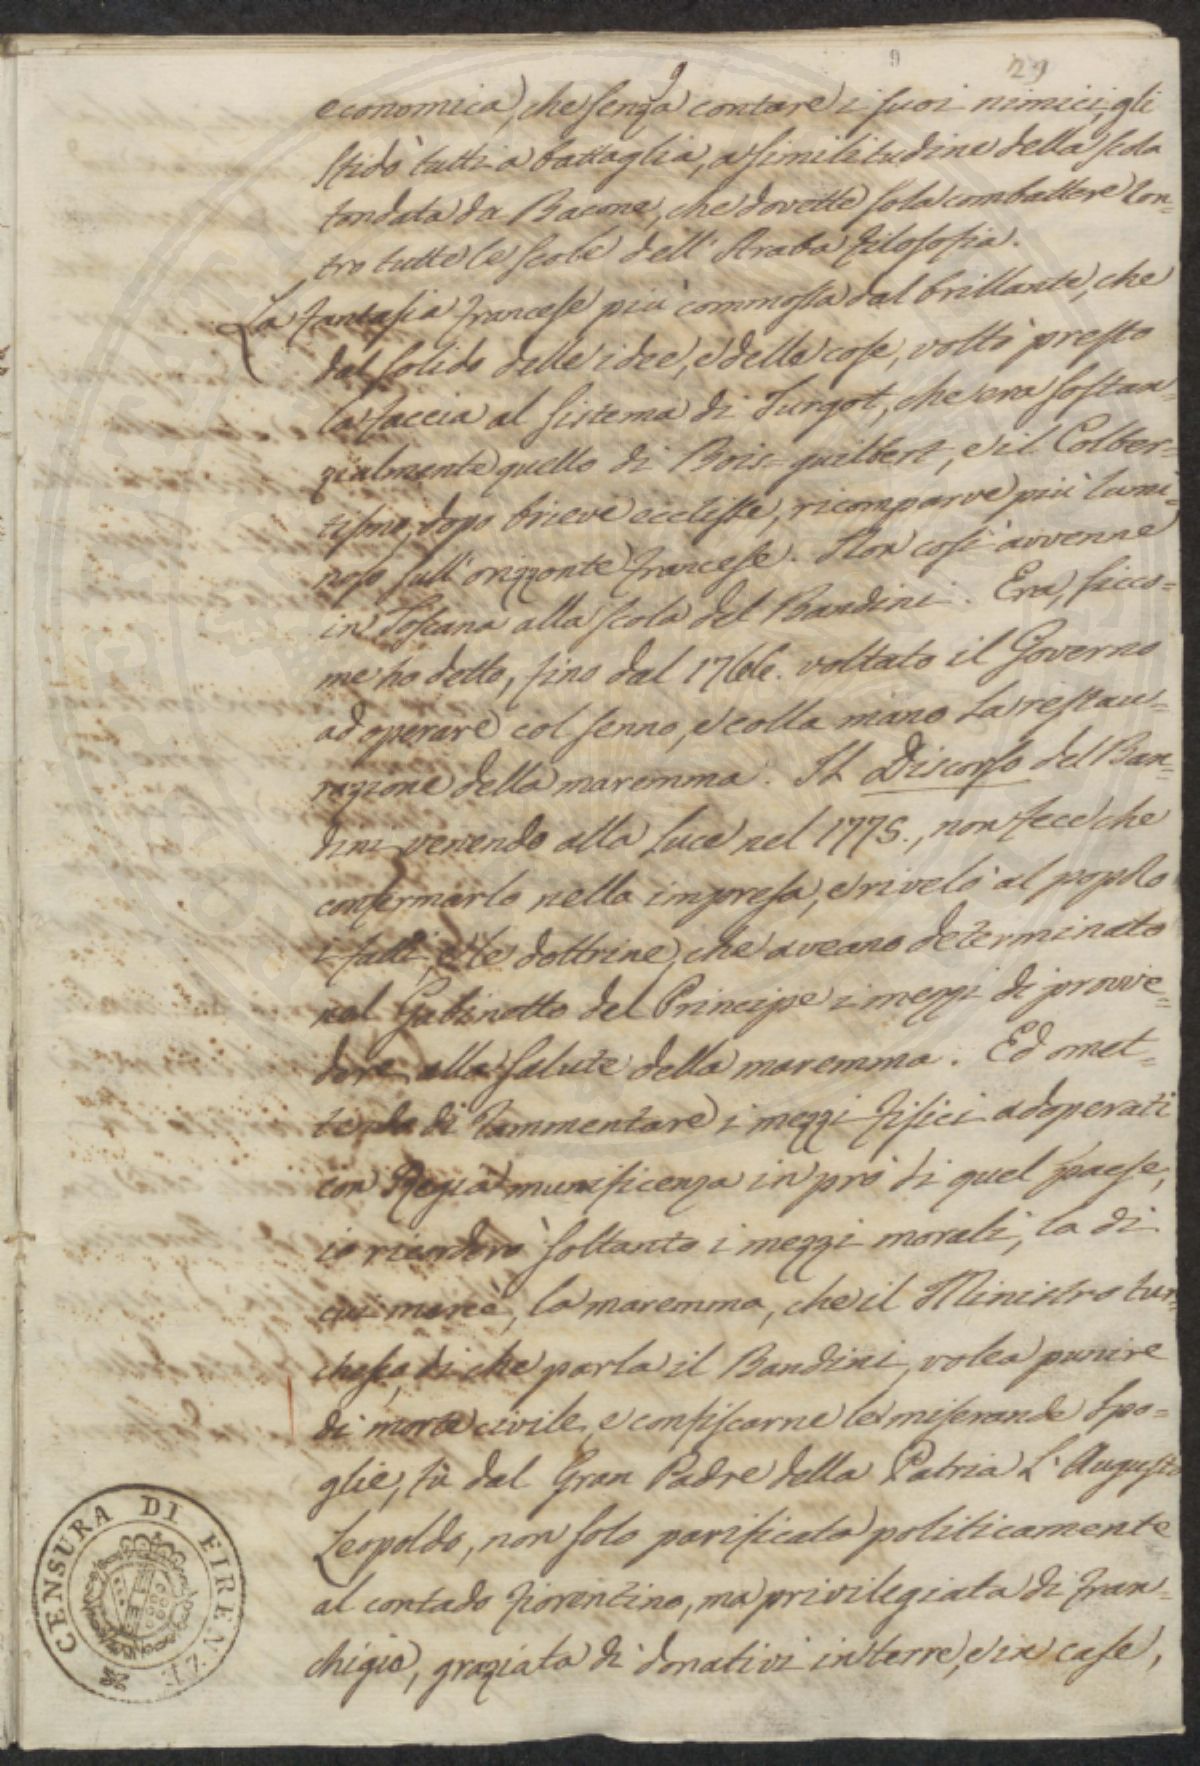 9
9
29
economica, che senza contare i suoi nimici, gli
sfidò tutti a battaglia, a similitudine della scola
fondata da Bacone, che dovette sola combattere con=
tro tutte le scole dell' Araba filosofia.
La fantasia francese più commossa dal brillante, che
dal solido delle idee, e delle cose, voltò presto
la faccia al sistema di Turgot, che era sostan=
zialmente quello di Bois=guilbert, e il Colber=
tismo, dopo brieve ecclisse, ricomparve più lumi=
noso sull' orizzonte francese. Non così avvenne
in Toscana alla scola del Bandini. Era, sicco=
me ho detto, fino dal 1766. voltato il Governo
ad operare col senno, e colla mano la restau=
razione della maremma. Il Discorso del Ban=
dini venendo alla luce nel 1775., non fece che
confermarlo nella impresa, e rivelò al popolo
i fatti, e le dottrine, che aveano determinato
nel Gabinetto del Principe i mezzi di provve=
dere alla salute della maremma. Ed omet=
tendo di rammentare i mezzi fisici adoperati
con Regia munificenza in prò di quel paese,
io ricorderò soltanto i mezzi morali, la di
cui mercè, la maremma, che il Ministro tur=
chesco, di che parla il Bandini, volea punire
di morte civile, e confiscarne le miserande spo=
glie, fù dal Gran Padre della Patria L' Augusto
Leopoldo, non solo parificata politicamente
al contado fiorentino, ma privilegiata di fran=
chigie, graziata di donativi in terre, e in case,
CENSURA DI FIRENZE